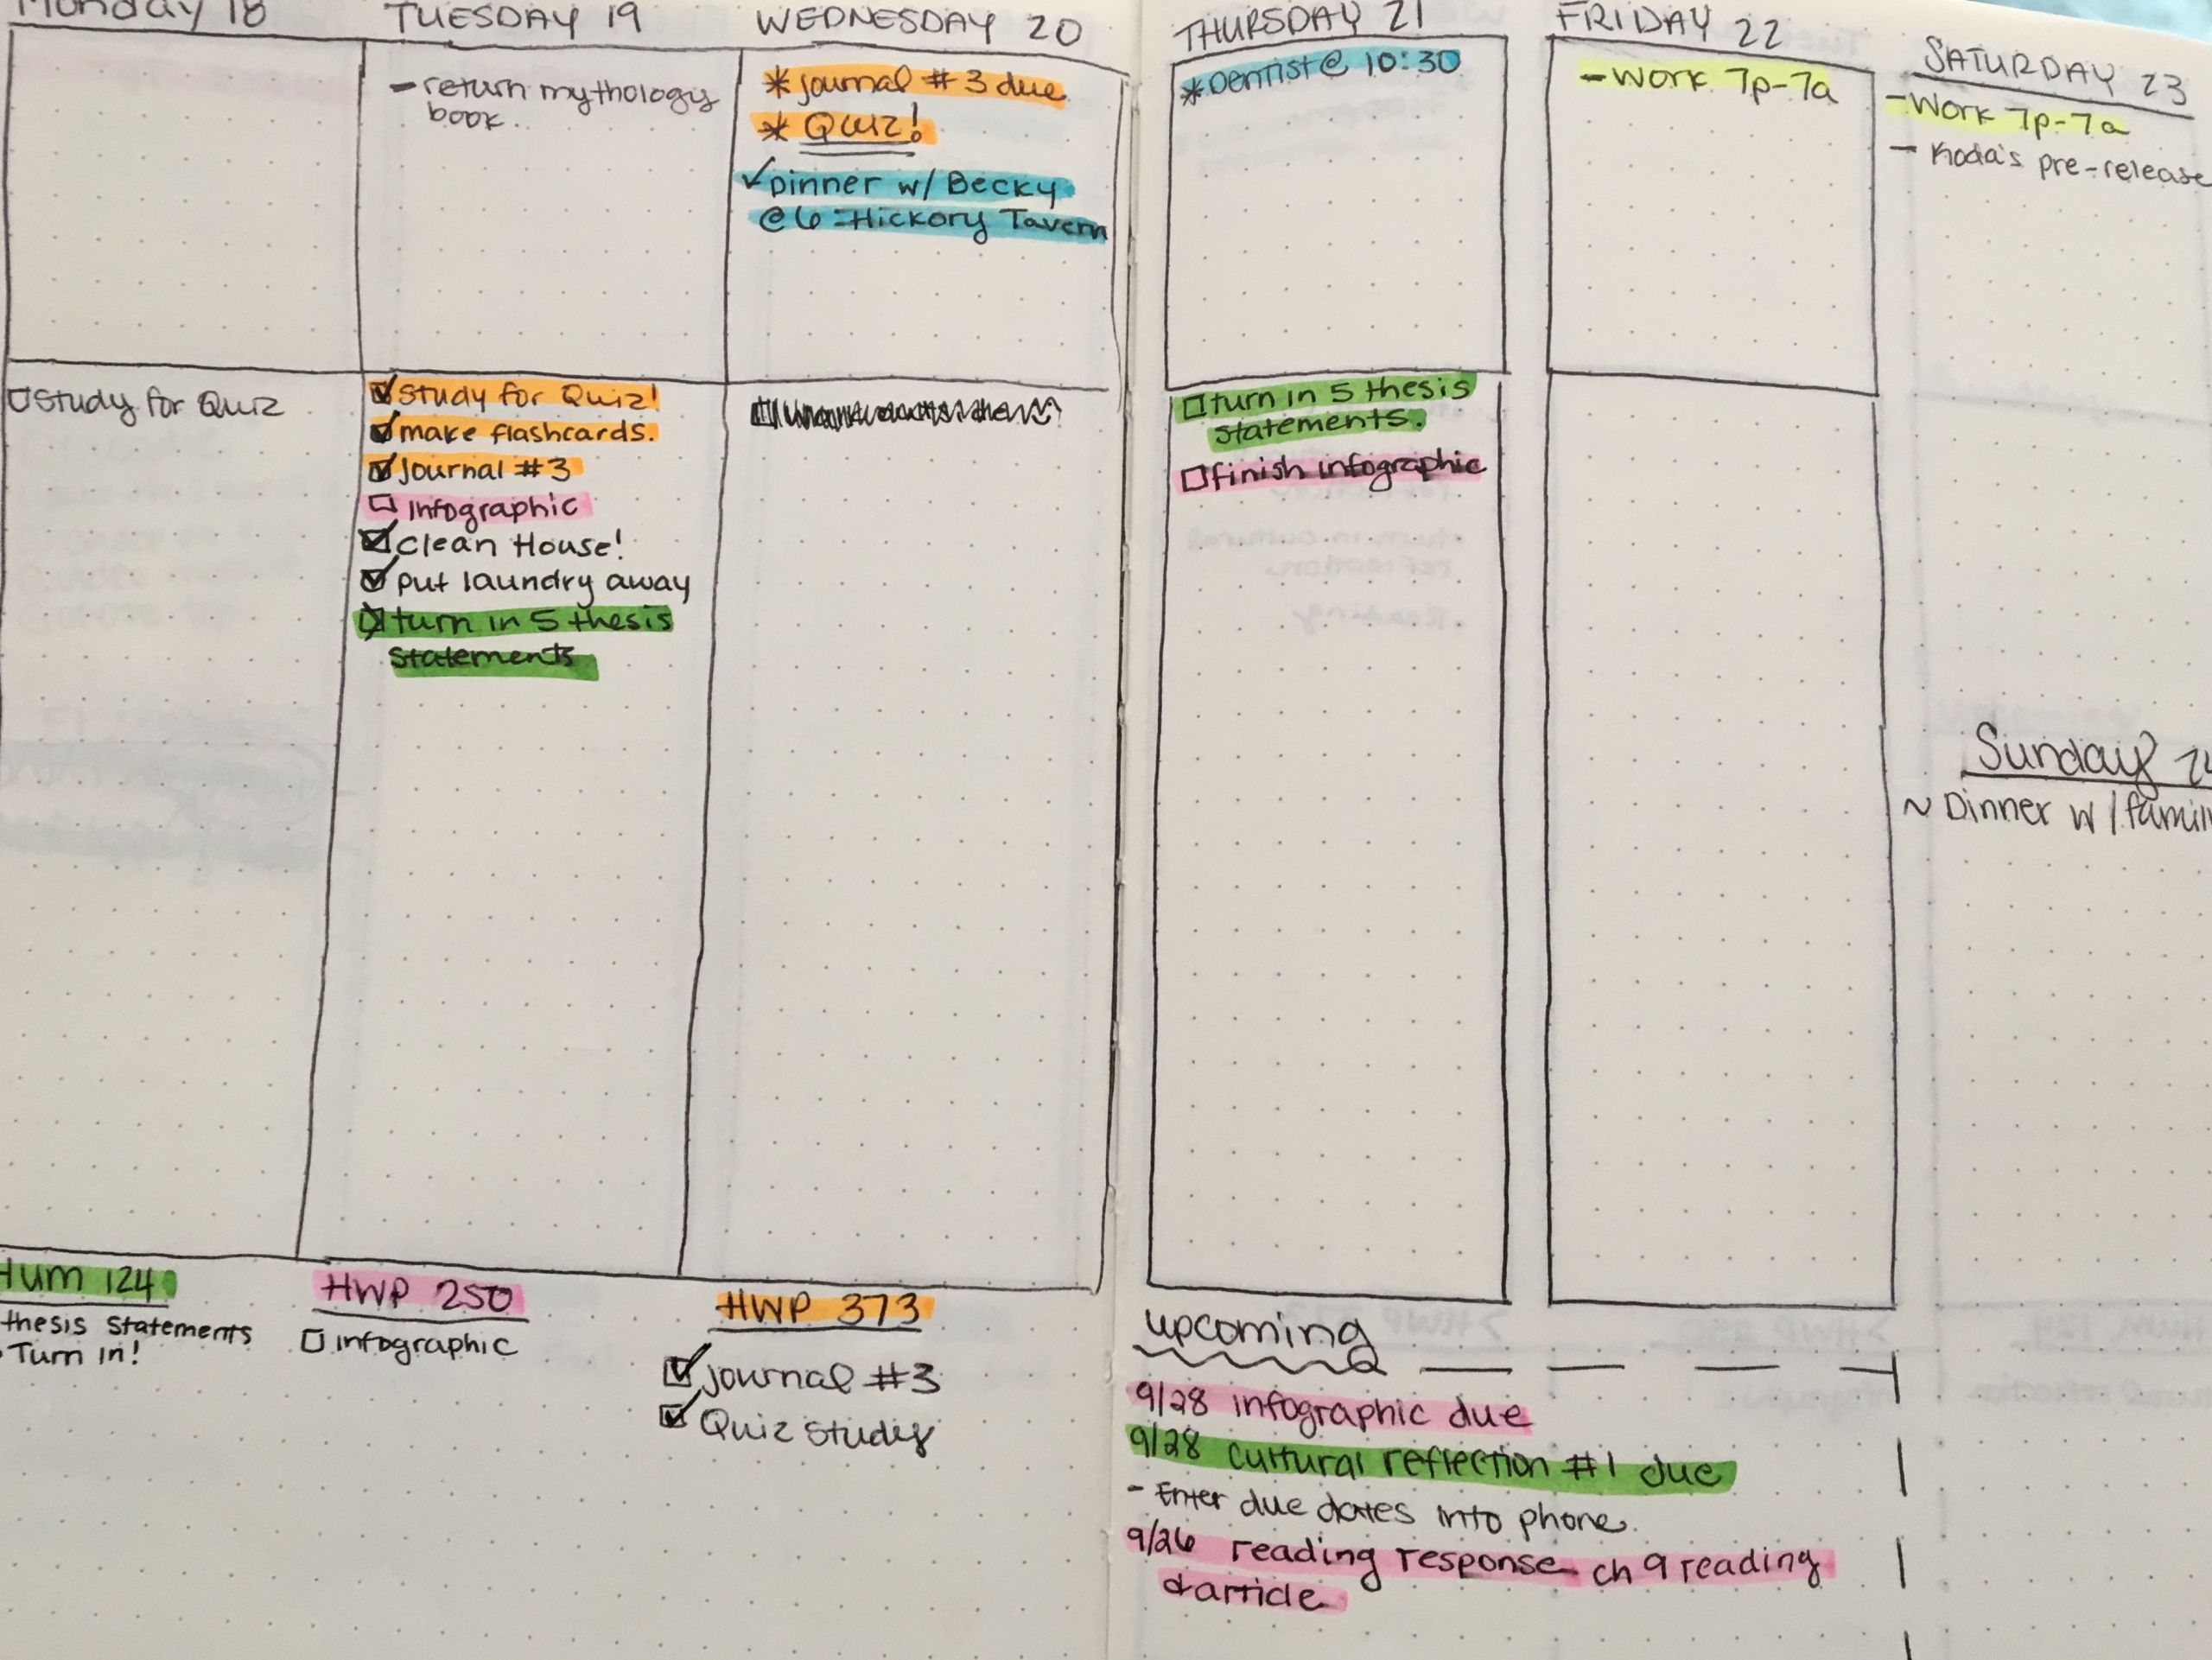 Monday 18
TUESDAY 19
WEDNESDAY 20
THURSDAY 21
FRIDAY 22
SATURDAY 23
- return mythology
book.
* Journal #3 due
* QUIZ!
✓ Dinner w/ Becky
@ 6 - Hickory Tavern
* Dentist @ 10:30
- Work 7p-7a
- Work 7p-7a
- Koda's pre-release
☐ Study for Quiz
☑ Study for Quiz!
☑ make flashcards.
☑ Journal #3
☐ Infographic
☑ Clean House!
☑ put laundry away
☒ turn in 5 thesis
statements
☐ turn in 5 thesis
statements.
☐ finish infographic
Sunday 24
~ Dinner w/ famil
Hum 124
thesis statements
Turn in!
HWP 250
☐ infographic
HWP 373
☑ Journal #3
☑ Quiz Study
upcoming
9/28 infographic due
9/28 cultural reflection #1 due
- Enter due dates into phone.
9/26 reading response - ch 9 reading
& article